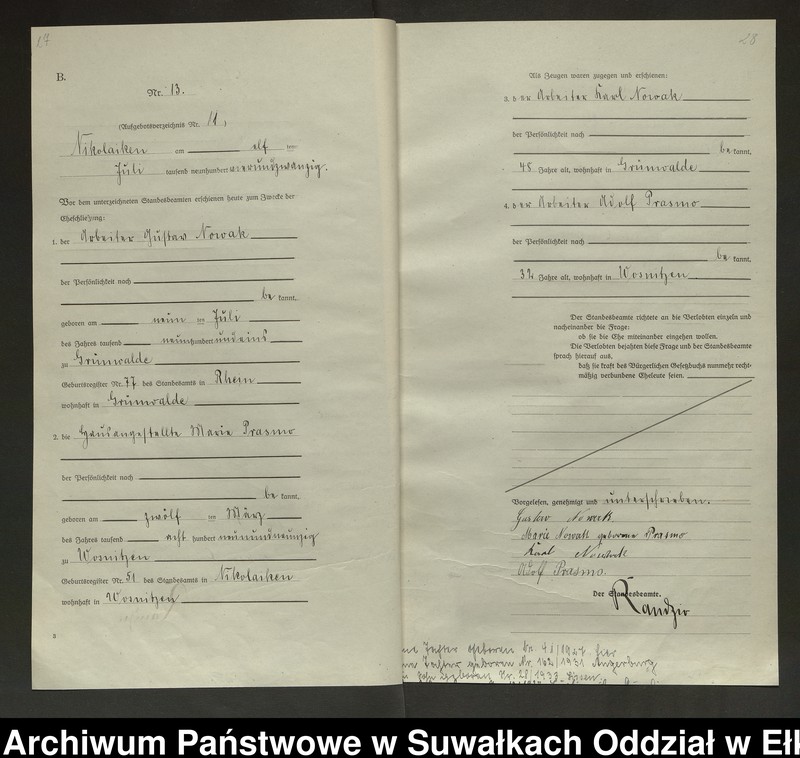 17
B.
Nr. 13.
(Aufgebotsverzeichnis Nr. 11)
Nikolaiken am elf ten
Juli tausend neunhundert vierundzwanzig.
Vor dem unterzeichneten Standesbeamten erschienen heute zum Zwecke der
Eheschließung:
1. der Arbeiter Gustav Nowak
der Persönlichkeit nach
be kannt,
geboren am neun ten Juli
des Jahres tausend neunhundert und eins
zu Grünwalde
Geburtsregister Nr. 77 des Standesamts in Rhein
wohnhaft in Grünwalde
2. die Hausangestellte Marie Prasmo
der Persönlichkeit nach
be kannt,
geboren am zwölf ten März
des Jahres tausend acht hundert neunundneunzig
zu Wosnitzen
Geburtsregister Nr. 51 des Standesamts in Nikolaiken
wohnhaft in Wosnitzen
3
28
Als Zeugen waren zugegen und erschienen:
3. der Arbeiter Karl Nowak
der Persönlichkeit nach
be kannt,
48 Jahre alt, wohnhaft in Grünwalde
4. der Arbeiter Adolf Prasmo
der Persönlichkeit nach
be kannt,
32 Jahre alt, wohnhaft in Wosnitzen
Der Standesbeamte richtete an die Verlobten einzeln und
nacheinander die Frage:
ob sie die Ehe miteinander eingehen wollen.
Die Verlobten bejahten diese Frage und der Standesbeamte
sprach hierauf aus,
daß sie kraft des Bürgerlichen Gesetzbuchs nunmehr recht-
mäßig verbundene Eheleute seien.
Vorgelesen, genehmigt und unterschrieben.
Gustav Nowak
Marie Nowak geborene Prasmo
Karl Nowak
Adolf Prasmo
Der Standesbeamte.
Randzio
Tochter geboren Nr. 41/1927 hier
Tochter geboren Nr. 162/1931 Angerburg
geboren Nr. 28/1933
Archiwum Państwowe w Suwałkach Oddział w Ełk